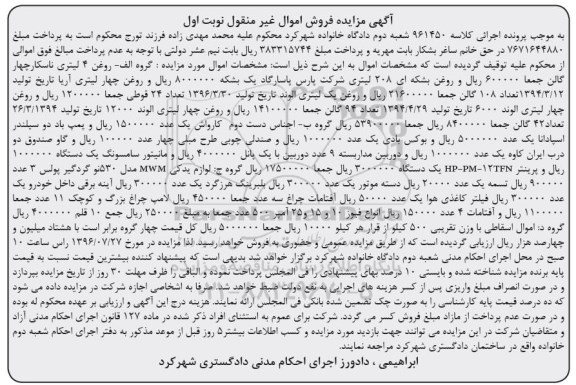 آگهی مزایده فروش اموال غیر منقول نوبت اول
به موجب پرونده اجرائی کلاسه ۹۶۱۴۵۰ شعبه دوم دادگاه خانواده شهرکرد محکوم علیه محمد مهدی زاده فرزند تورج محکوم است به پرداخت مبلغ
۷۶۷۱۶۴۴۸۸۰ در حق خانم ساغر بشکار بابت مهریه و پرداخت مبلغ ۳۸۳۳۱۵۷۴۴ ریال بابت نیم عشر دولتی با توجه به عدم پرداخت مبالغ فوق اموالی
از محکوم علیه توقیف گردیده است که مشخصات اموال به این شرح ذیل است: مشخصات اموال مورد مزایده : گروه الف- روغن ۴ لیتری ناسکارچهار
گالن جمعا ۶۰۰۰۰۰ ریال و روغن بشکه ای ۲۰۸ لیتری شرکت پارس پاسارگاد یک بشکه ۸۰۰۰۰۰۰ ریال و روغن چهار لیتری آریا تاریخ تولید
۱۳۹۴/۳/۱۲تعداد ۱۰۸ گالن جمعا ۲۱۶۰۰۰۰۰ ریال و روغن یک لیتری الوند تاریخ تولید ۱۳۹۶/۳/۳۰ تعداد ۲۴ قوطی جمعا ۱۲۰۰۰۰۰ ریال و روغن
چهار لیتری الوند ۶۰۰۰ تاریخ تولید ۱۳۹۴/۴/۲۹ تعداد ۹۴ گالن جمعا ۱۴۱۰۰۰۰۰ ریال و روغن چهار لیتری الوند ۱۲۰۰۰ تاریخ تولید ۲۶/۳/۱۳۹۴
تعداد۴۲ گالن جمعا ۸۴۰۰۰۰۰ ریال جمعا ۵۳۹۰۰۰۰۰ ریال گروه ب- اجناس دست دوم کارواش یک عدد ۱۵۰۰۰۰۰ ریال و پمپ باد دو سیلندر
اسپادانا یک عدد ۵۰۰۰۰۰۰ ریال و بوکس بادی یک عدد ۱۰۰۰۰۰۰ ریال و صندلی چوبی طرح مبلی چهار عدد ۱۰۰۰۰۰۰ ریال و گاو صندوق دو
درب ایران کاوه یک عدد ۱۰۰۰۰۰۰۰ ریال و دوربین مداربسته ۹ عدد دوربین با یک پانل ۴۰۰۰۰۰۰ ریال و مانیتور سامسونگ یک دستگاه ۱۰۰۰۰۰۰
ریال و پرینتر HP-PM-۱۲TFN یک دستگاه ۳۰۰۰۰۰۰ ریال جمعا ۱۷۵۰۰۰۰۰ ریال گروه ج: لوازم یدکی MWM مدل ۵۳۰نو گردگیر پولس ۳ عدد
۹۰۰۰۰۰ ریال تسمه یک عدد ۲۰۰۰۰ ریال دسته موتور یک عدد ۳۰۰۰۰۰ ریال بلبرینگ هرزگرد یک عدد ۳۰۰۰۰۰ ریال آینه برقی داخل خودرو یک
عدد ۳۰۰۰۰۰ ریال فیلتر کاغذی هوا یک عدد ۵۰۰۰۰ ریال آفتامات چراغ سه عدد جمعا ۴۵۰۰۰۰ ریال لامپ چراغ بزرگ و کوچک ۱۱ عدد جمعا
۱۱۰۰۰۰۰ ریال و آفتامات ۴ عدد ۱۵۰۰۰۰ ریال انواع فیوز ۱۰و ۱۵ و۲۵ آمپر ۵۰ عدد جمعا به مبلغ ۲۵۰۰۰۰ ریال جمع ۱۰ قلم ۴۰۰۰۰۰۰ ریال
گروه د: اموال اسقاطی با وزن تقریبی ۵۰۰ کیلو از قرار هر کیلو ۱۰۰۰۰ ریال جمعا ۵۰۰۰۰۰۰ ریال کل قیمت چهار گروه برابر است با هشتاد میلیون و
چهارصد هزار ریال ارزیابی گردیده است که از طریق مزایده عمومی و حضوری به فروش خواهد رسید. لذا مزایده در مورخ ۱۳۹۶/۰۷/۲۷ راس ساعت ۱۰
صبح در محل اجرای احکام مدنی شعبه دوم دادگاه خانواده شهرکرد برگزار خواهد شد بدیهی است که پیشنهاد کننده بیشترین قیمت نسبت به قیمت
پایه برنده مزایده شناخته شده و بایستی ۱۰ درصد بهای پیشنهادی را فی المجلس پرداخت نموده و الباقی را ظرف مهلت ۳۰ روز از تاریخ مزایده بپردازد
و در صورت انصراف مبلغ واریزی پس از کسر هزینه های اجرایی به نفع دولت ضبط خواهد شد. صرفا به اشخاصی اجازه شرکت در مزایده داده می شود
که ده درصد قیمت پایه کارشناسی را به صورت چک تضمین شده بانکی فی المجلس ارائه نمایند. هزینه درج این آگهی و ارزیابی بر عهده محکوم له بوده
و در صورت عدم پرداخت از مازاد مبلغ فروش کسر می گردد. شرکت برای عموم به استثنای افراد ذکر شده در ماده ۱۲۷ قانون اجرای احکام مدنی آزاد
و متقاضیان شرکت در این مزایده می توانند جهت بازدید مورد مزایده و کسب اطلاعات بیشتر۵ روز قبل از موعد مذکور به دفتر اجرای احکام شعبه دوم
خانواده واقع در ساختمان دادگستری شهرکرد مراجعه نمایند.
ابراهیمی ، دادورز اجرای احکام مدنی دادگستری شهرکرد